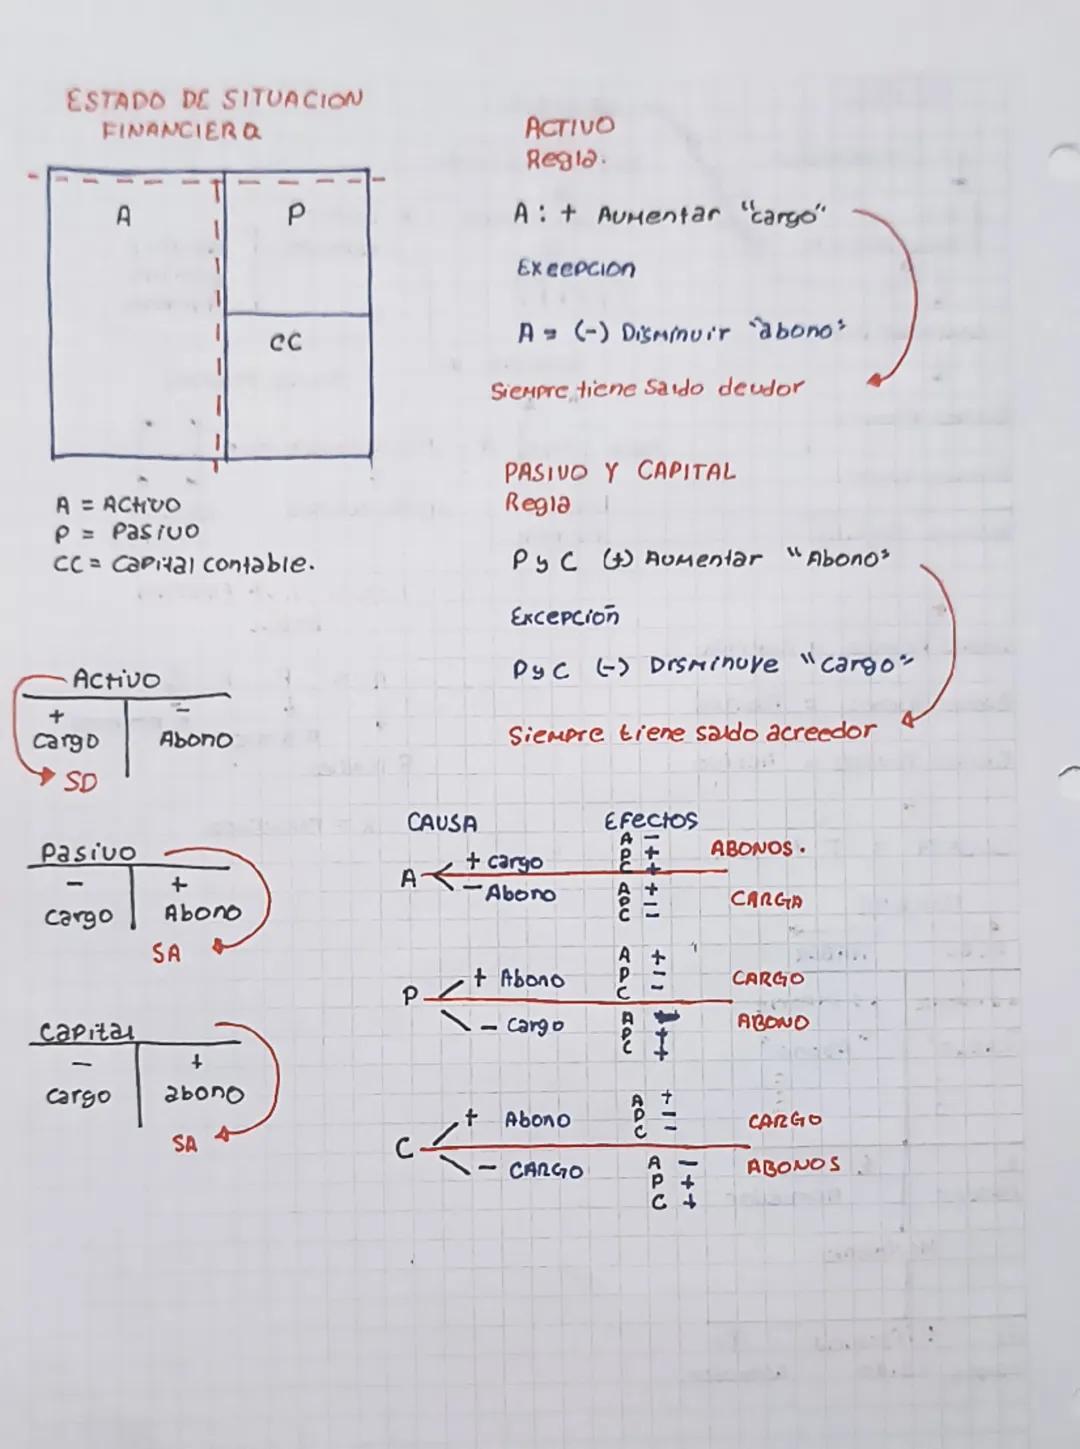 ESTADO DE SITUACION
FINANCIERA
A
P
CC
A = ACtivo
P = Pasivo
CC = Capital contable.
Activo
+ −
cargo Abono
SD
Pasivo
− +
cargo Abono
SA
Capital
− +
cargo abono
SA
ACTIVO
Regla.
A: + AUMentar "cargo"
Exeepcion
A = (-) DisMinuir "abono"
SieMpre tiene Saldo deudor
PASIVO Y CAPITAL
Regla
P y C (+) AUMentar "Abono"
Excepción
P y C (-) DisMinuye "cargo"
SieMpre tiene saldo acreedor
CAUSA Efectos
A + cargo A − P + C + ABONOS.
− Abono A + P − C − CARGA
P + Abono A + P − C − CARGO
− Cargo A − P + C + ABONO
C + Abono A + P − C − CARGO
− CARGO A − P + C + ABONOS